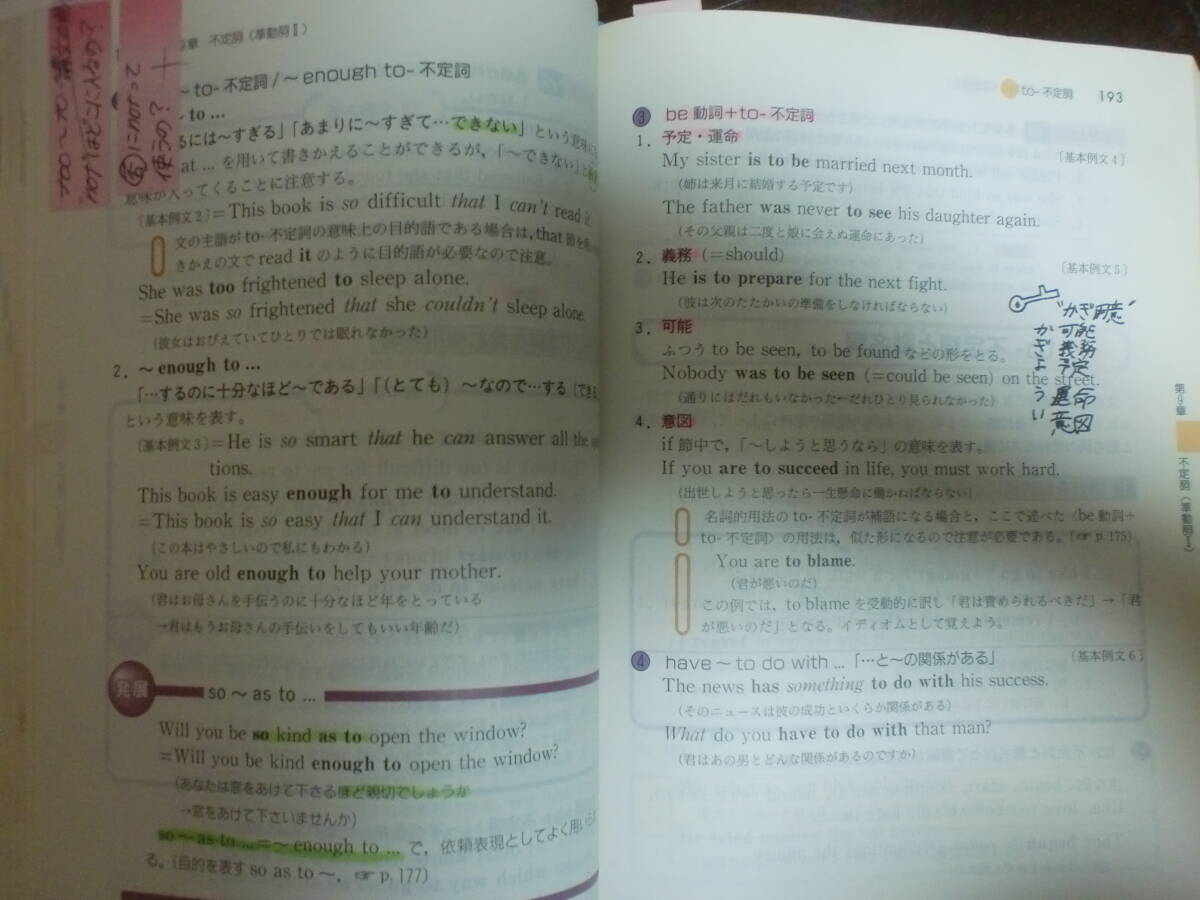 9章 不定詞(準動詞Ⅱ)
~to-不定詞/~enough to-不定詞
to …
るには~すぎる」「あまりに~すぎて…できない」という意味
at … を用いて書きかえることができるが,「~できない」と
意味が入ってくることに注意する。
〔基本例文2〕=This book is so difficult that I can't read it
文の主語がto-不定詞の意味上の目的語である場合は, that節を
きかえの文でread itのように目的語が必要なので注意。
She was too frightened to sleep alone.
=She was so frightened that she couldn't sleep alone.
(彼女はおびえていてひとりでは眠れなかった)
2. ~enough to …
「…するのに十分なほど~である」「(とても)~なので…する(できる
という意味を表す。
〔基本例文3〕=He is so smart that he can answer all the
tions.
This book is easy enough for me to understand.
=This book is so easy that I can understand it.
(この本はやさしいので私にもわかる)
You are old enough to help your mother.
(君はお母さんを手伝うのに十分なほど年をとっている
→君はもうお母さんの手伝いをしてもいい年齢だ)
発展 so ~ as to …
Will you be so kind as to open the window?
=Will you be kind enough to open the window?
(あなたは窓をあけて下さるほど親切でしょうか
→窓をあけて下さいませんか)
so ~ as to …=~ enough to … で, 依頼表現としてよく用いら
る。(目的を表す so as to ~, ☞ p. 177)
to-不定詞 193
3 be動詞+to-不定詞
1. 予定・運命 〔基本例文4〕
My sister is to be married next month.
(姉は来月に結婚する予定です)
The father was never to see his daughter again.
(その父親は二度と娘に会えぬ運命にあった)
2. 義務 (=should) 〔基本例文5〕
He is to prepare for the next fight.
(彼は次のたたかいの準備をしなければならない)
3. 可能
ふつう to be seen, to be found などの形をとる。
Nobody was to be seen (=could be seen) on the street.
(通りにはだれもいなかった←だれひとり見られなかった)
4. 意図
if 節中で,「~しようと思うなら」の意味を表す。
If you are to succeed in life, you must work hard.
(出世しようと思ったら一生懸命に働かねばならない)
名詞的用法のto-不定詞が補語になる場合と, ここで述べた〈be動詞+
to-不定詞〉の用法は, 似た形になるので注意が必要である。(☞ p. 175)
You are to blame.
(君が悪いのだ)
この例では, to blame を受動的に訳し「君は責められるべきだ」→「君
が悪いのだ」となる。イディオムとして覚えよう。
4 have ~ to do with …「…と~の関係がある」 〔基本例文6〕
The news has something to do with his success.
(そのニュースは彼の成功といくらか関係がある)
What do you have to do with that man?
(君はあの男とどんな関係があるのですか)
"かぎ用意"
か 可能
ぎ 義務
よ 予定
う 運命
い 意図
第9章
不定詞(準動詞Ⅱ)